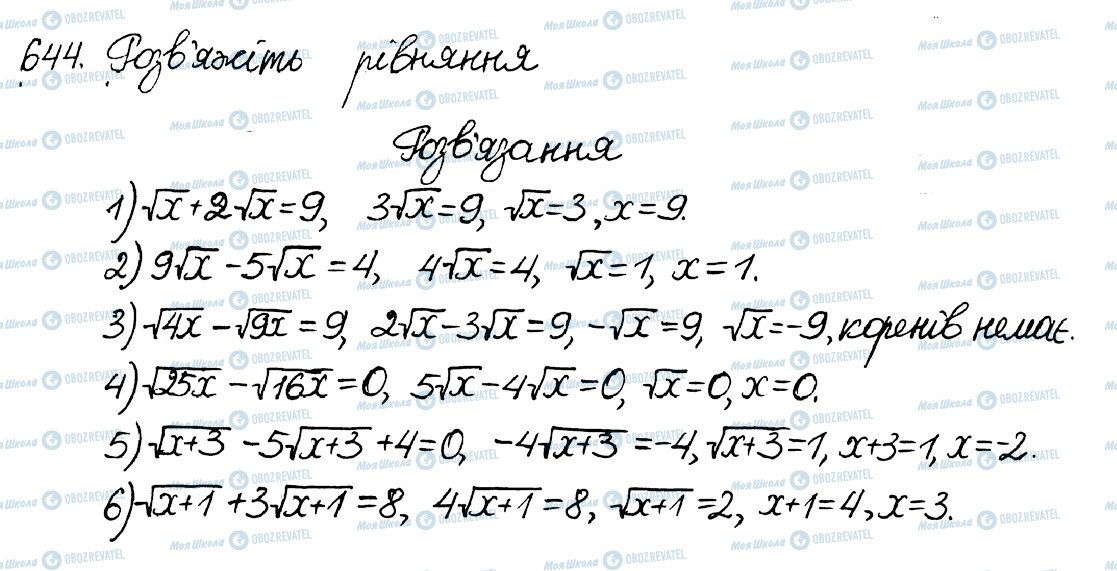 644. Розв'яжіть рівняння
Розв'язання
1) √x + 2√x = 9, 3√x = 9, √x = 3, x = 9.
2) 9√x - 5√x = 4, 4√x = 4, √x = 1, x = 1.
3) √4x - √9x = 9, 2√x - 3√x = 9, -√x = 9, √x = -9, коренів немає.
4) √25x - √16x = 0, 5√x - 4√x = 0, √x = 0, x = 0.
5) √x+3 - 5√x+3 + 4 = 0, -4√x+3 = -4, √x+3 = 1, x+3 = 1, x = -2.
6) √x+1 + 3√x+1 = 8, 4√x+1 = 8, √x+1 = 2, x+1 = 4, x = 3.
Моя Школа OBOZREVATEL